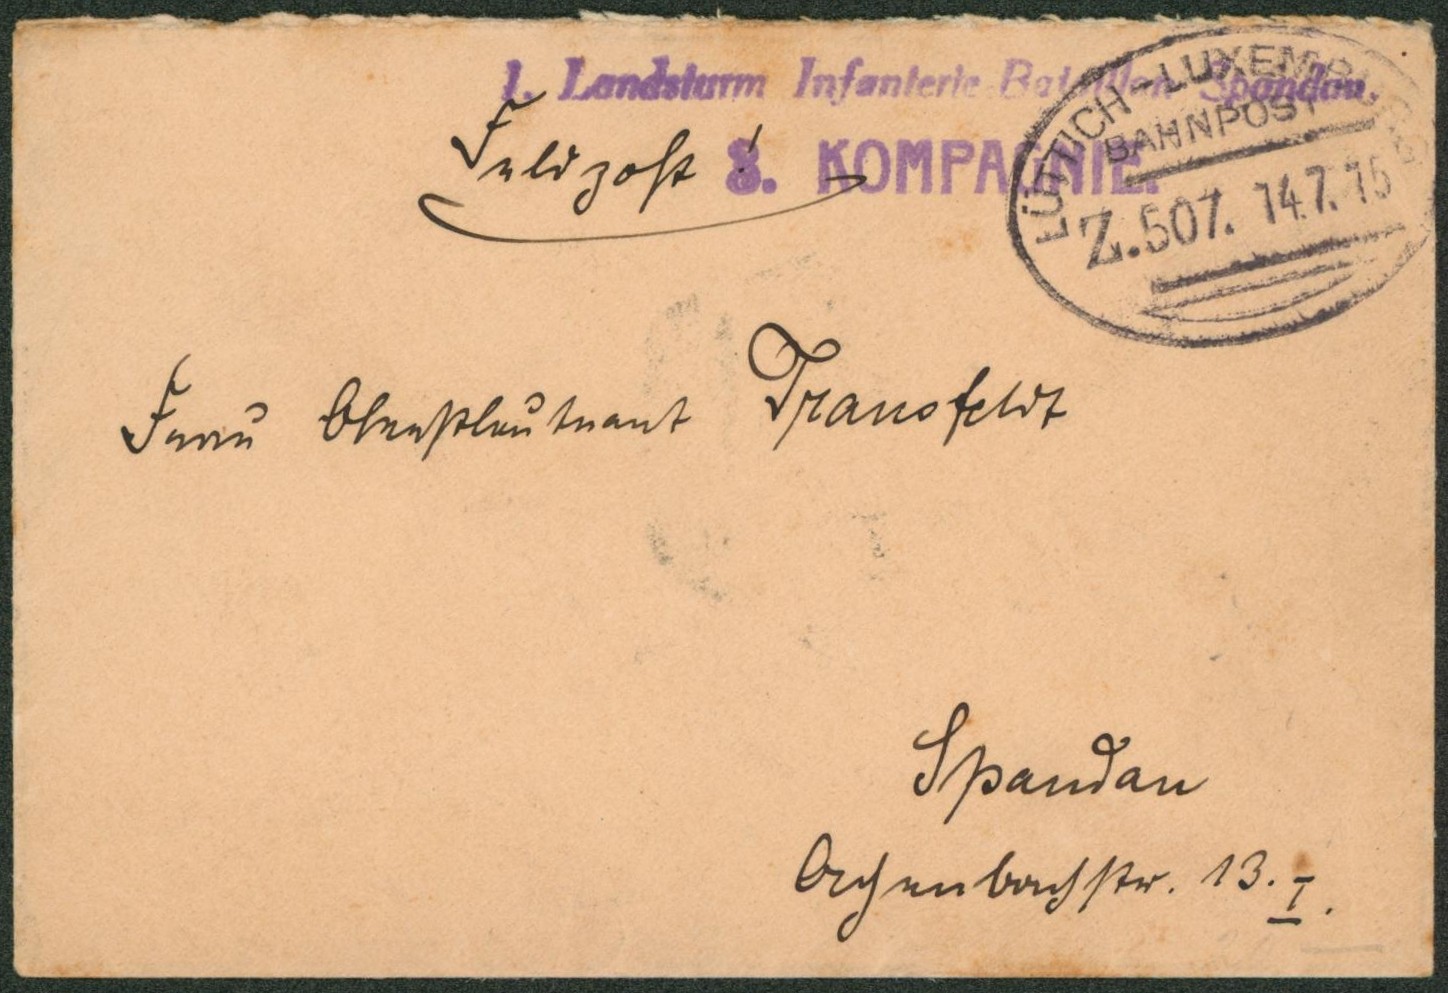 1. Landsturm Infanterie-Bataillon Spandau.
Feldpost!
8. KOMPAGNIE.
LÜTTICH-LUXEMBURG
BAHNPOST
Z.507. 14.7.15
Frau Oberstleutnant Transfeldt
Spandau
Achenbachstr. 13. I.